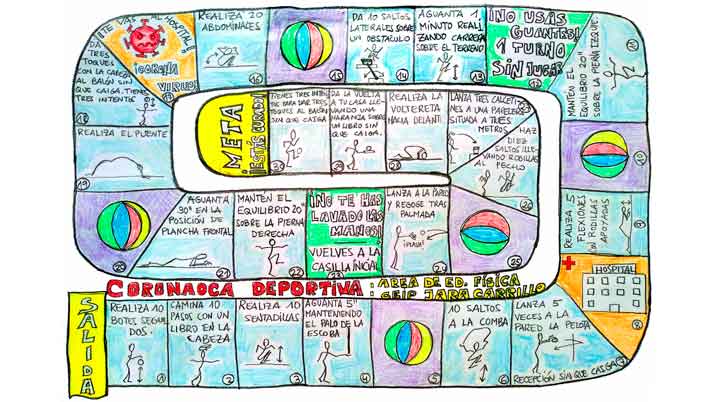 SALIDA
REALIZA 10
BOTES SEGUI
DOS.
1
CAMINA 10
PASOS CON UN
LIBRO EN LA
CABEZA
2
REALIZA 10
SENTADILLAS
3
AGUANTA 5"
MANTENIENDO
EL PALO DE LA
ESCOBA
4
5
10 SALTOS
A LA COMBA
6
LANZA 5
VECES A LA
PARED LA PELOTA
RECEPCIÓN SIN QUE CAIGA
7
HOSPITAL
8
REALIZA 5
FLEXIONES
CON RODILLAS
APOYADAS
9
10
MANTÉN EL
EQUILIBRIO 20"
SOBRE LA PIERNA IZQUIE.
11
¡NO USAS
GUANTES!
1 TURNO
SIN JUGAR
AGUANTA 1
MINUTO REALI
ZANDO CARRERA
SOBRE EL TERRENO
13
DA 10 SALTOS
LATERALES SOBRE
UN OBSTÁCULO
14
15
REALIZA 20
ABDOMINALES
16
¡TE VAS AL HOSPITAL!
¡CORONA
VIRUS!
17
DA TRES
TOQUES
CON LA CABEZA
AL BALÓN SIN
QUE CAIGA. TIENES
TRES INTENTOS
REALIZA EL PUENTE
19
20
AGUANTA
30" EN LA
POSICIÓN DE
PLANCHA FRONTAL
21
MANTÉN EL
EQUILIBRIO 20"
SOBRE LA PIERNA
DERECHA
22
¡NO TE HAS
LAVADO LAS
MANOS!
VUELVES A LA
CASILLA INICIAL
23
LANZA A LA PARED
Y RECOGE TRAS
PALMADA
¡PLAWA!
24
25
HAZ
DIEZ
SALTOS LLE
VANDO RODILLAS AL
PECHO
26
LANZA TRES CALCETI
NES A UNA PAPELERA
SITUADA A TRES
METROS
REALIZA LA
VOLTERETA
HACIA DELANTE
DA LA VUELTA
A TU CASA LLE
VANDO UNA
NARANJA SOBRE
UN LIBRO SIN
QUE CAIGA.
TIENES TRES INTEN
TOS PARA DAR TRES
TOQUES AL BALÓN
SIN QUE CAIGA
META
¡ESTÁS CURADO!
CORONAOCA DEPORTIVA: ÁREA DE ED. FÍSICA
CEIP JARA CARRILLO